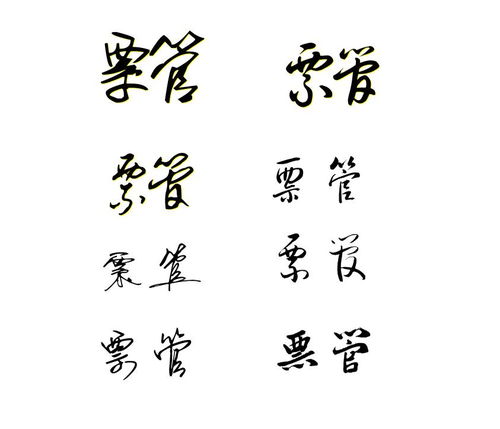 票管 票管
票管 票管
票管 票管
票管 票管